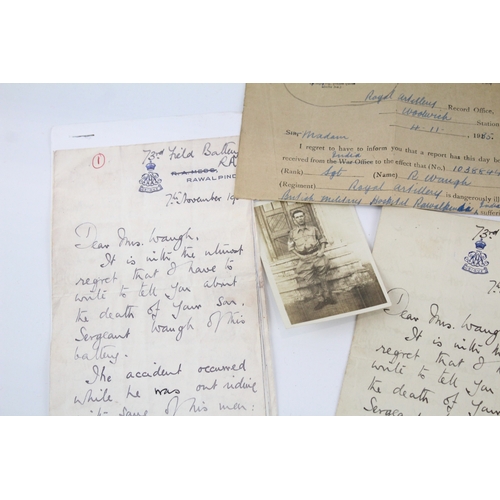 ①
73rd Field Battery
RA
R.A. MESS,
RAWALPINDI
7th November 19
Dear Mrs. Waugh.
It is with the utmost
regret that I have to
write to tell You about
the death of Your Son.
Sergeant Waugh of this
battery.
The accident occurred
while he was out riding
with some of his men:
Royal Artillery Record Office,
Woolwich Station
4. 11. 19
Sir Madam
I regret to have to inform you that a report has this day b
received from the War Office India to the effect that (No.)
(Rank) Sgt (Name) R. Waugh
(Regiment) Royal Artillery is dangerously ill
British Military Hospital Rawalpindi India
73rd
7t
Dear Mrs. Waugh
It is with
regret that I
write to tell
the death of Y
Sergeant Wau